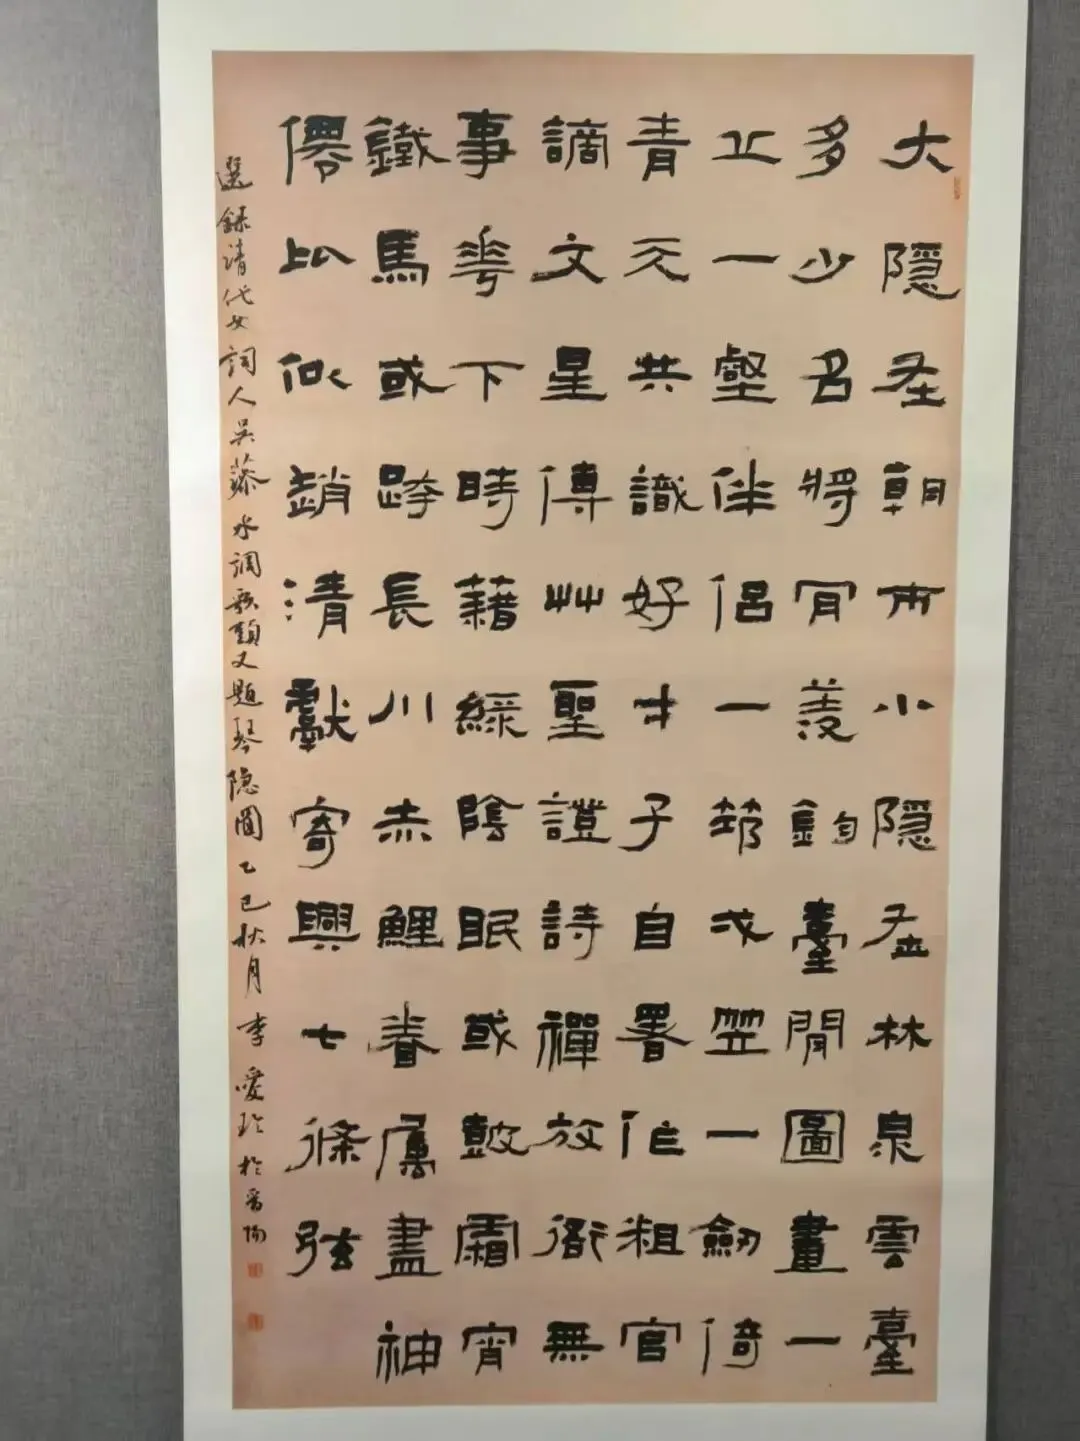 大隱在朝市小隱在林泉雲臺
多少名將肎羨釣臺閒圖畫一
丘一壑伴侶一笻弌笠一劍倚
青天共識好才子自署作粗官
謫文星傳艸聖證詩禪放衙無
事花下時藉綠陰眠或鼓霜宵
鐵馬或跨長川赤鯉眷屬盡神
僊比似趙清獻寄興七條弦
選錄清代女詞人吳藻水調歌頭又題琴隱圖乙巳秋月李愛珍於晉陽